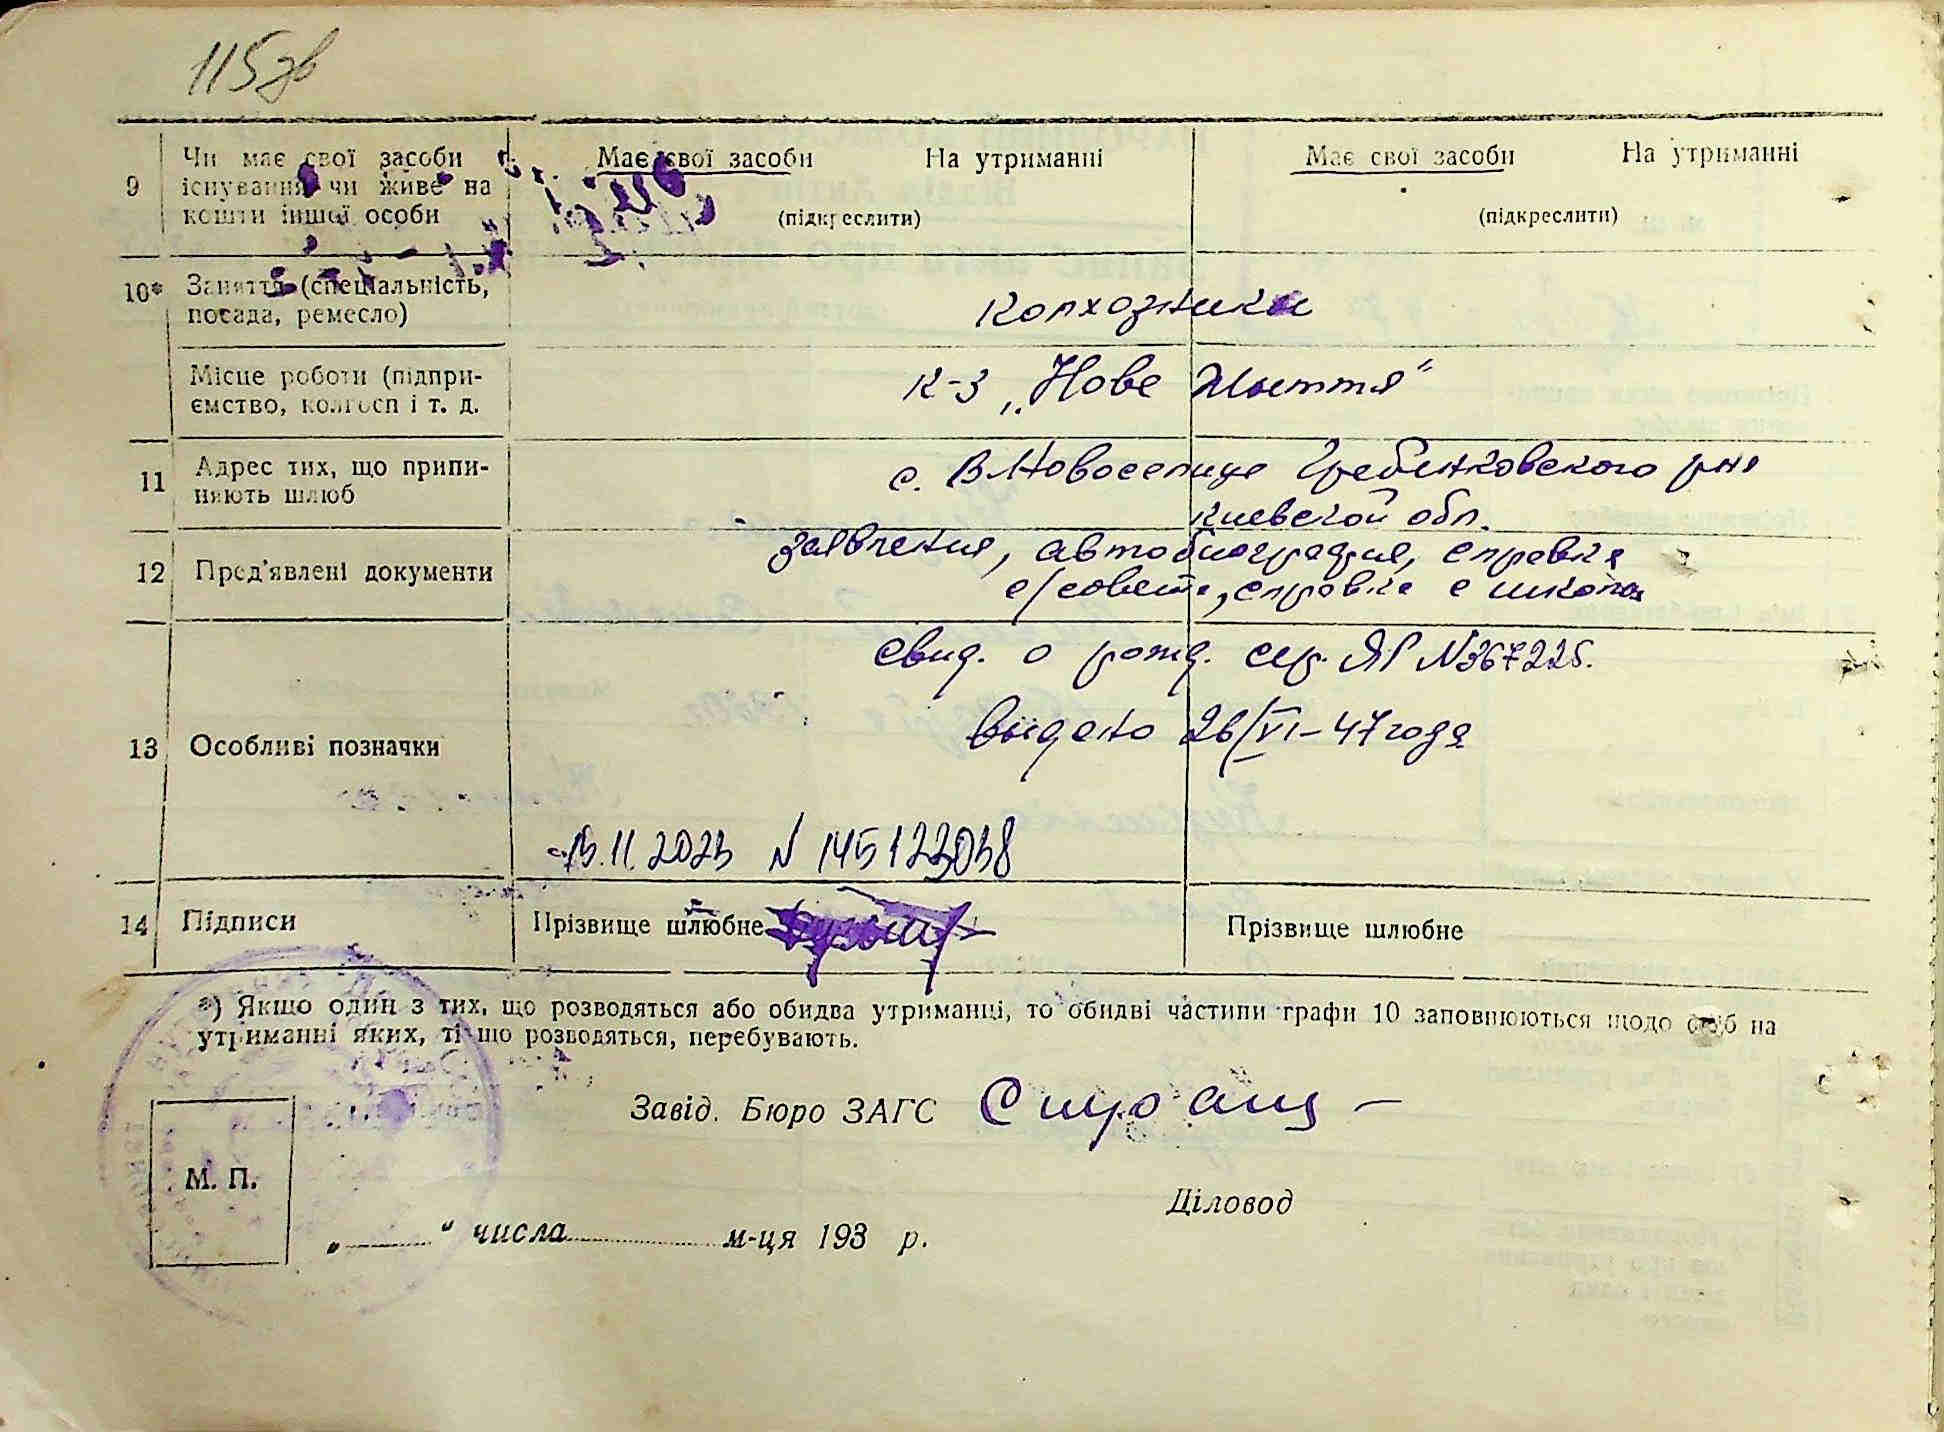 115зв
9 Чи має свої засоби існування чи живе на кошти іншої особи
Має свої засоби На утриманні
(підкреслити)
Має свої засоби На утриманні
(підкреслити)
10* Заняття (спеціальність, посада, ремесло)
Колхозники
Місце роботи (підпри-
ємство, колгосп і т. д.
к-з „Нове Життя"
11 Адрес тих, що припи-
няють шлюб
с. В Новоселице Гребенковского р-на
Киевской обл.
12 Пред'явлені документи
заявления, автобиография, справка
с/совета, справка с школы
13 Особливі позначки
Свид. о рожд. сер. ЯР N367225.
выдано 26/VI-47 года
13.11.2023 N 145123038
14 Підписи
Прізвище шлюбне
Прізвище шлюбне
*) Якщо один з тих, що розводяться або обидва утриманні, то обидві частини графи 10 заповнюються щодо осіб на
утриманні яких, ті що розводяться, перебувають.
Завід. Бюро ЗАГС
Діловод
М. П.
„ " числа м-ця 193 р.